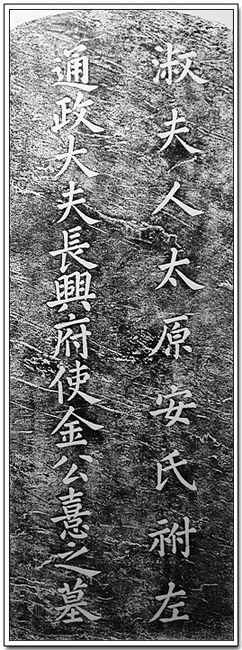 淑夫人太原安氏祔左
通政大夫長興府使金公憙之墓